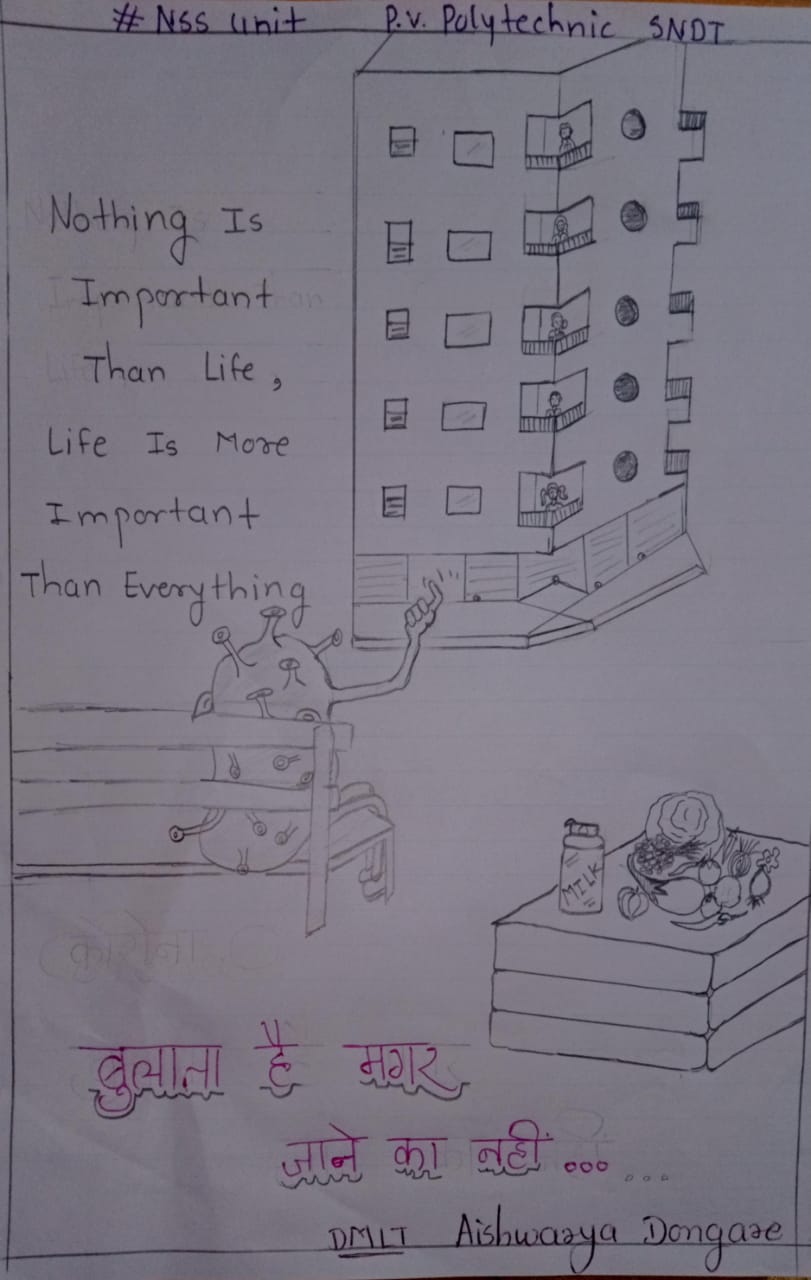 # NSS Unit P.V. Polytechnic SNDT
Nothing Is
Important
Than Life,
Life Is More
Important
Than Everything
MILK
बुलाता है मगर
जाने का नहीं... ...
DMLT Aishwarya Dongare